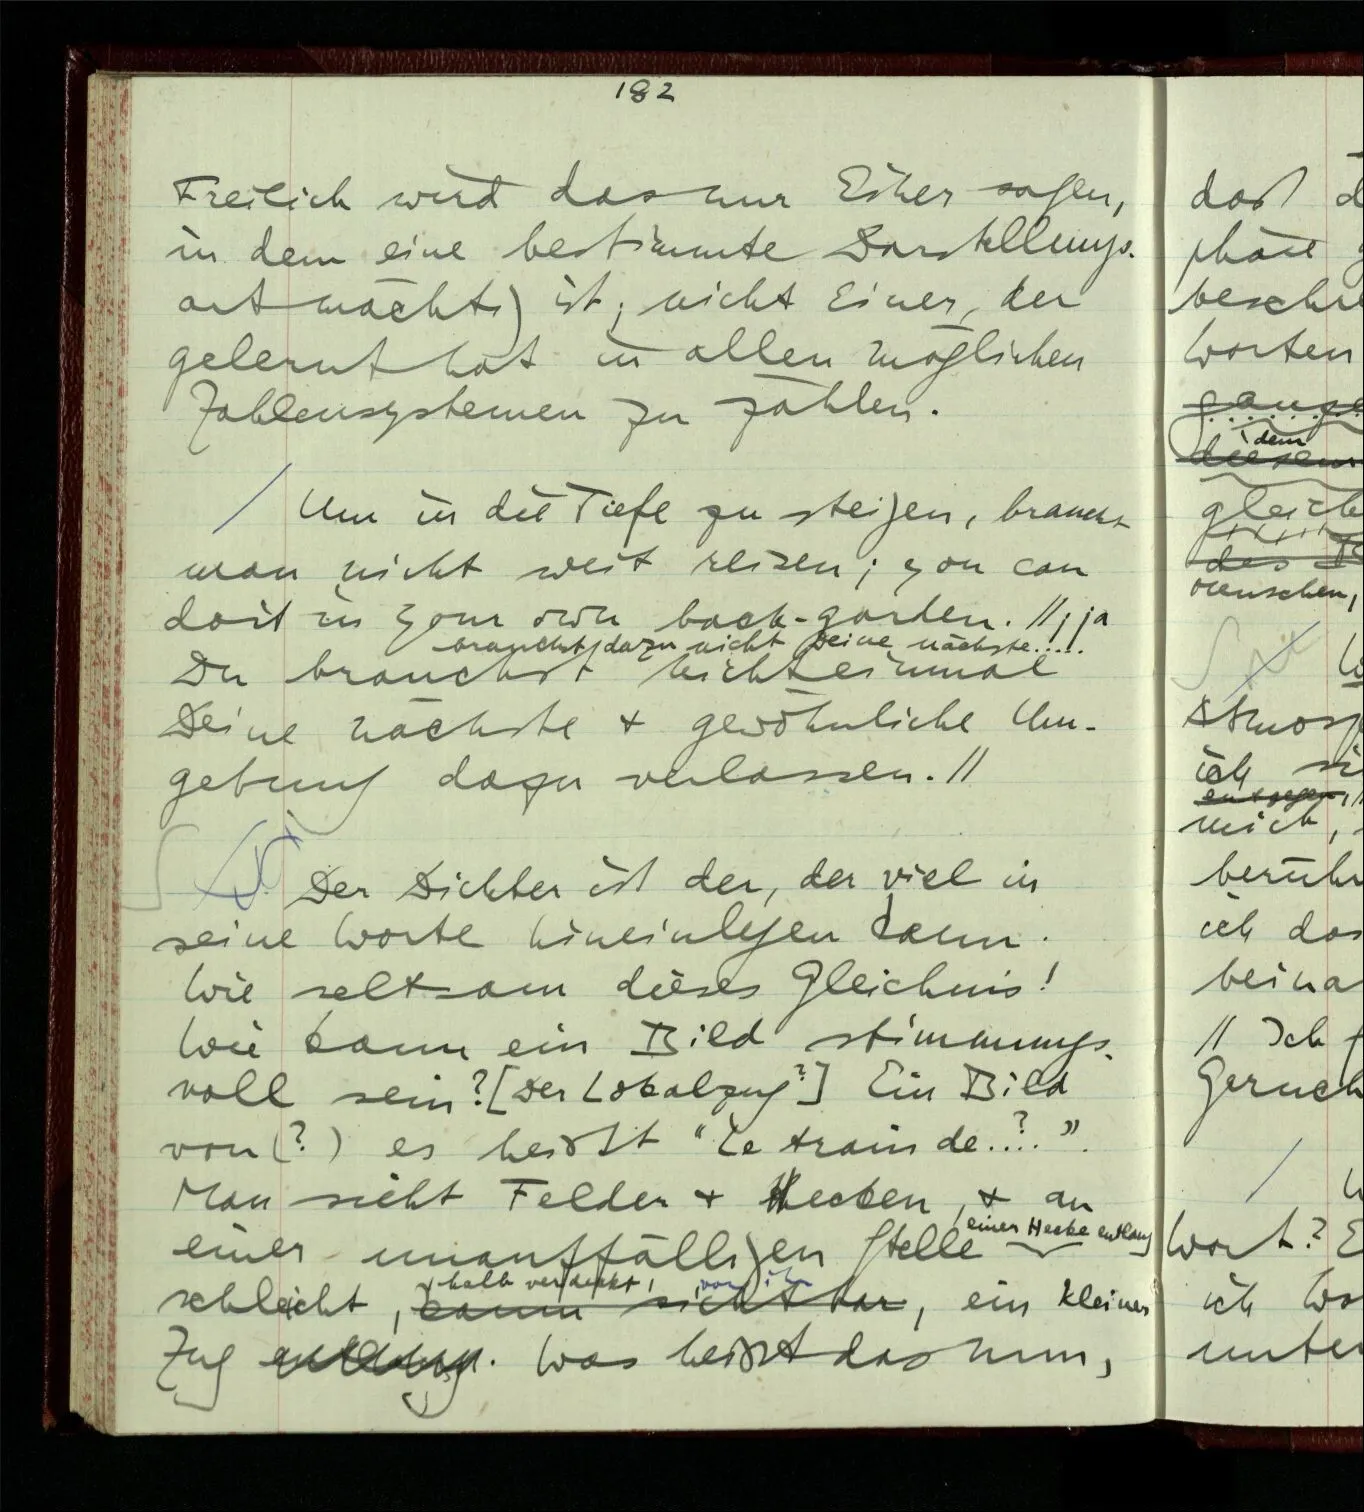 182
Freilich wird das nur Einer sagen,
in dem eine bestimmte Darstellungs-
art mächt(ig) ist, nicht Einer, der
gelernt hat in allen möglichen
Zahlensystemen zu zählen.
/ Um in die Tiefe zu steigen, braucht
man nicht weit reisen; you can
do it in your own back-garden. //; ja
brauchst dazu nicht Deine nächste.....
Du brauchst nicht einmal
Deine nächste + gewöhnliche Um-
gebung dazu verlassen. //
Der Dichter ist der, der viel in
seine Worte hineinlegen kann.
Wie seltsam dieses Gleichnis!
Wie kann ein Bild stimmungs-
voll sein? [Der Lokalzug?] Ein Bild
von (?) es heißt “Le train de..?..”.
Man sieht Felder + Hecken, + an
einer unauffälligen Stelle einer Hecke entlang
halb verdeckt, von ihr
schleicht, kaum sichtbar, ein kleiner
Zug entlang. Was heißt das nun,
daß
beschre
Worten
ganze
dem
diesem
gleich
des
Menschen,
Atmosp
ich
entgegen
mich,
berühr
ich das
beina
// Ich
Geruch
/
Wort? E
ich Wo
unter